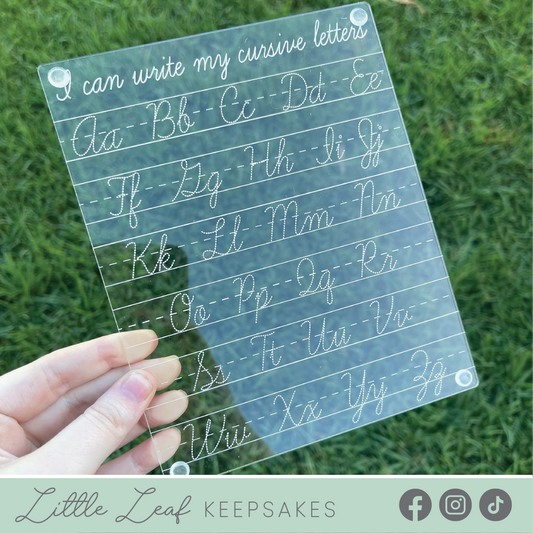 I can write my cursive letters
Aa Bb Cc Dd Ee
Ff Gg Hh Ii Jj
Kk Ll Mm Nn
Oo Pp Qq Rr
Ss Tt Uu Vv
Ww Xx Yy Zz
Little Leaf KEEPSAKES